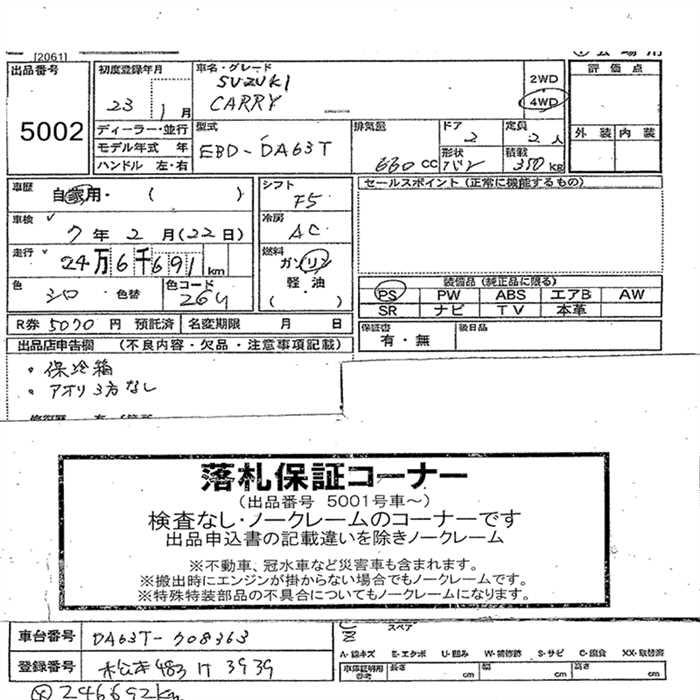 [2061]
出品番号
5002
初度登録年月
23 1月
車名・グレード
SUZUKI
CARRY
2WD
4WD
評価点
外装 内装
ディーラー・並行
モデル年式 年
ハンドル 左・右
型式
EBD-DA63T
排気量
660 CC
ドア
2
定員
2人
形状
バン
積載
350 KG
車歴
自家用・( )
車検
7年2月(22日)
走行
24万6千691 km
色
シロ 色替
色コード
26U
シフト
F5
冷房
AC
燃料
ガソリン
軽・油
( . )
セールスポイント (正常に機能するもの)
装備品 (純正品に限る)
PS PW ABS エアB AW
SR ナビ TV 本革
R券 5070 円 預託済 名変期限 月 日
保証書
有・無
後日品
出品店申告欄 (不良内容・欠品・注意事項記載)
・保冷箱
・アオリ3方なし
落札保証コーナー
(出品番号 5001号車~)
検査なし・ノークレームのコーナーです
出品申込書の記載違いを除きノークレーム
※不動車、冠水車など災害車も含まれます。
※搬出時にエンジンが掛からない場合でもノークレームです。
※特殊特装部品の不具合についてもノークレームになります。
車台番号
DA63T-708363
スペア
A-線キズ E-エクボ U-凹み W-補修跡 S-サビ C-腐食 XX-取替済
登録番号
松本483 け 3939
車庫証明用参考 長さ cm 幅 cm 高さ cm
246692km